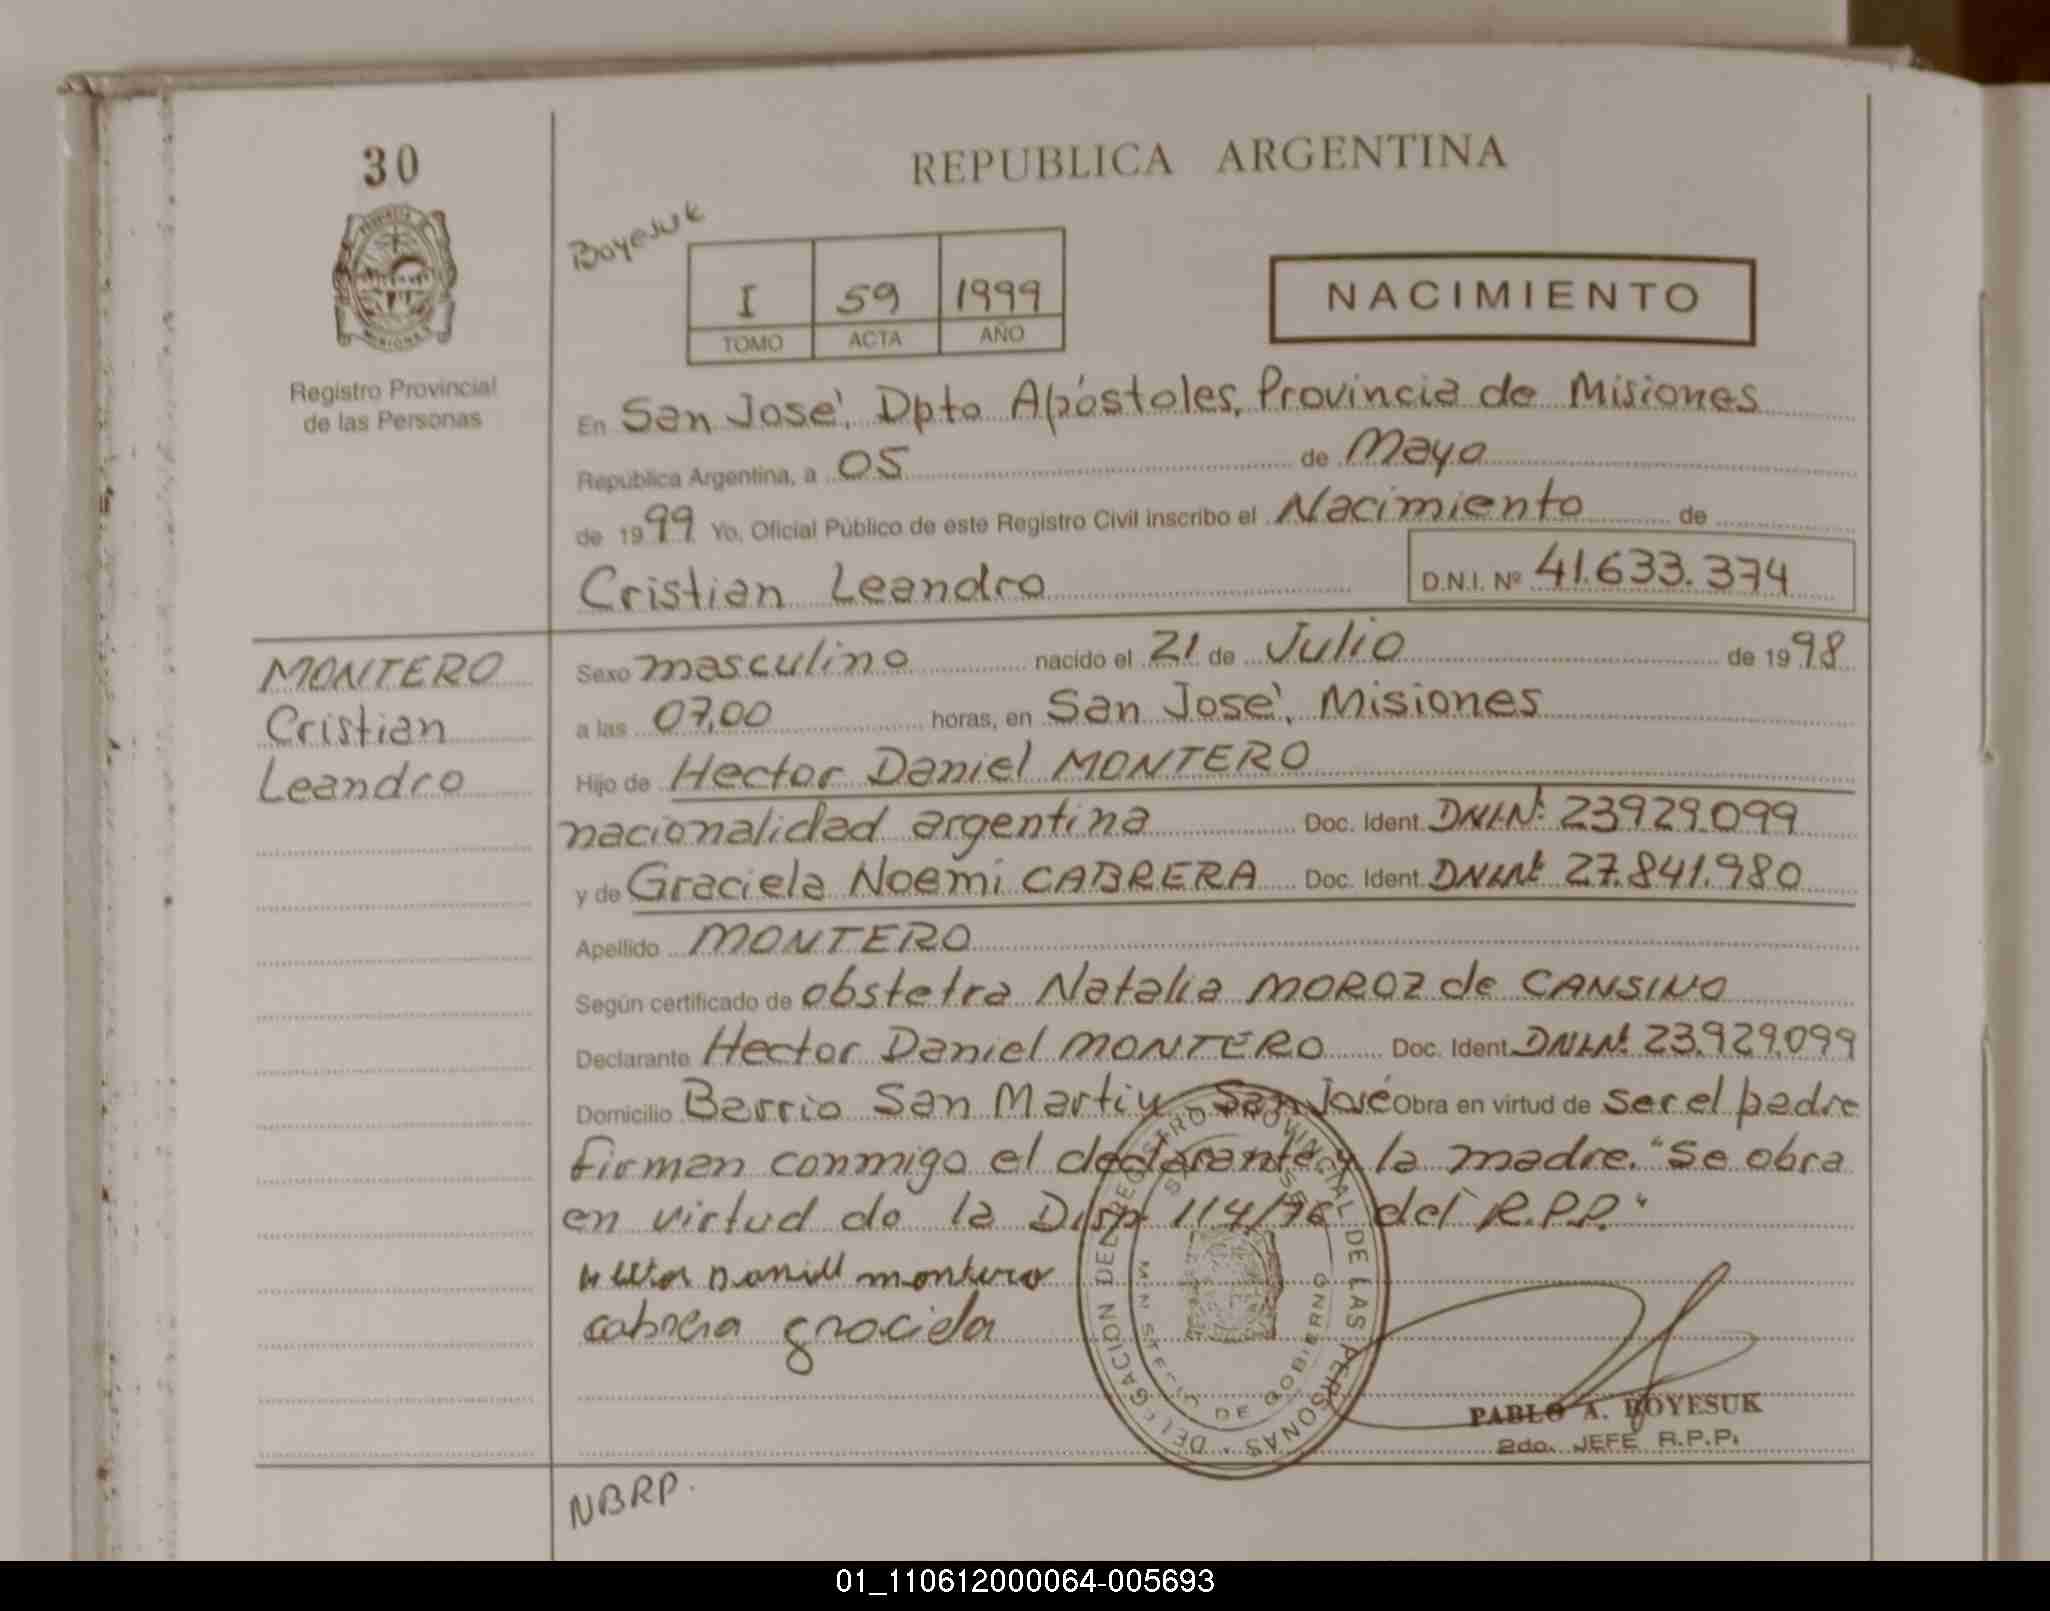 30
REPUBLICA ARGENTINA
Boyesuk
I 59 1999
TOMO ACTA AÑO
NACIMIENTO
Registro Provincial
de las Personas
En San José, Dpto Apóstoles, Provincia de Misiones
República Argentina, a 05 de Mayo
de 1999 Yo, Oficial Público de este Registro Civil inscribo el Nacimiento de
Cristian Leandro D.N.I. Nº 41.633.374
MONTERO
Cristian
Leandro
Sexo masculino nacido el 21 de Julio de 1998
a las 07,00 horas, en San José, Misiones
Hijo de Hector Daniel MONTERO
nacionalidad argentina Doc. Ident. DNI.Nº 23929.099
y de Graciela Noemi CABRERA Doc. Ident. DNI.Nº 27.841.980
Apellido MONTERO
Según certificado de obstetra Natalia MOROZ de CANSINO
Declarante Hector Daniel MONTERO Doc. Ident. DNI.Nº 23.929.099
Domicilio Barrio San Martin San José Obra en virtud de ser el padre
firman conmigo el declarante y la madre. "Se obra
en virtud de la Disp 114/76 del R.P.P."
Hector Daniel montero
cabrera graciela
DELEGACION DEL REGISTRO PROVINCIAL DE LAS PERSONAS
SAN JOSE
MINISTERIO DE GOBIERNO
PABLO A. BOYESUK
2do. JEFE R.P.P.
NBRP.
01_110612000064-005693